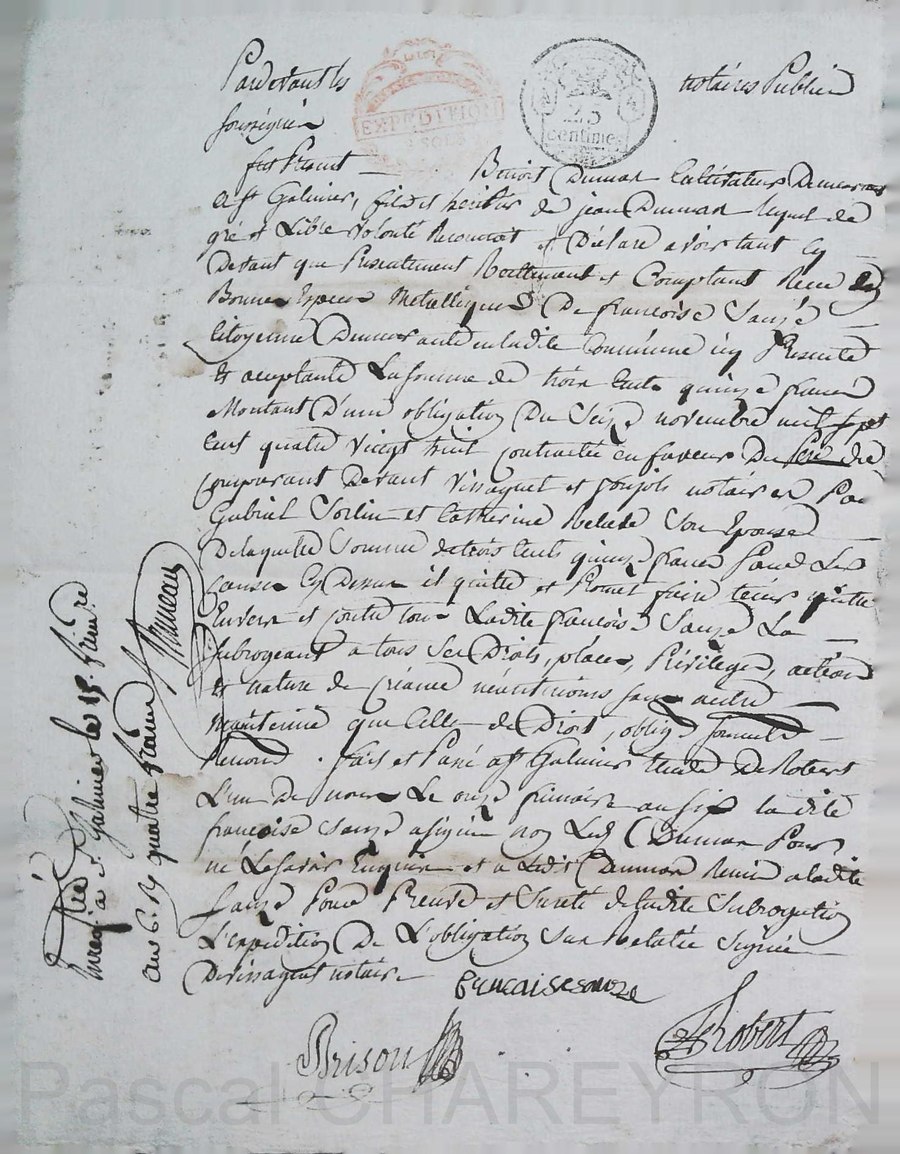 Pardevant les notaires Publics
EXPEDITION
25
centimes
soussignés
fut Present Benoit Dumas Cultivateur Demeurant
a St Galmier, fils et heritier de jean Dumas lequel de
gré et Libre volonté Reconnoit et Déclare avoir tant Cy
Devant que Presentement Reellement et Comptant Receu En
Bonnes Especes Metalliques De francoise Sauze
Citoyenne Demeurante en ladite Commune icy Presente
et aceptante La somme de trois Cents quinze francs
Montant D'une obligation Du Seize novembre mil sept
Cent quatre vingt huit contractée en faveur Du Pere du
Comparant Devant Vissaguet et notaires Par
Gabriel et Catherine Son Epouse
De laquelle Somme de trois Cents quinze francs Pour Les
Causes Cy Dessus il quitte et Promet faire tenir quitte
Envers et contre tous Ladite francoise Sauze La
Subrogeant a tous Ses Droits, places, Privileges, action
et nature de Créance neantmoins sans autre
maintenue que Celle de Droit, oblige Soumet
Renonce . fait et Passé a St Galmier Etude De Robert
L'un De nous Le onze frimaire an Six la dite
francoise Sauze a signé non Ledt Dumas Pour
ne Le savoir Enquis et a Ledit Dumas Remis a ladite
Sauze Pour Preuve et Sureté de ladite Subrogation
L'expedition De L'obligation Sus relatée Signée
De vissaguet notaire
francaise sauze
Brison
Robert
Enregé a St Galmier le 15 frimre
an 6. Rç quatre francs
Pascal CHAREYRON